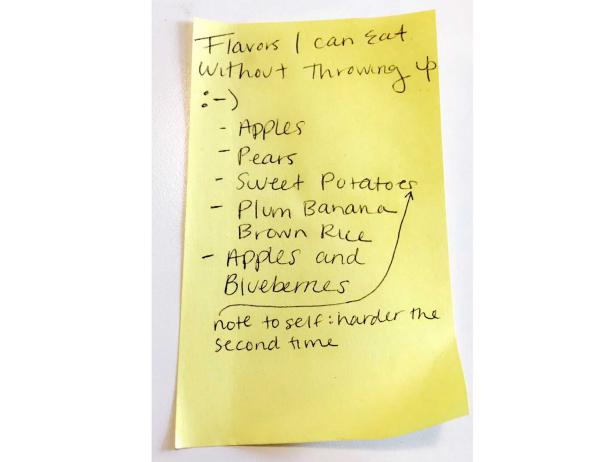 Flavors I can Eat
Without Throwing up
:-)
- Apples
- Pears
- Sweet Potatoes
- Plum Banana
Brown Rice
- Apples and
Blueberries
note to self: harder the
second time